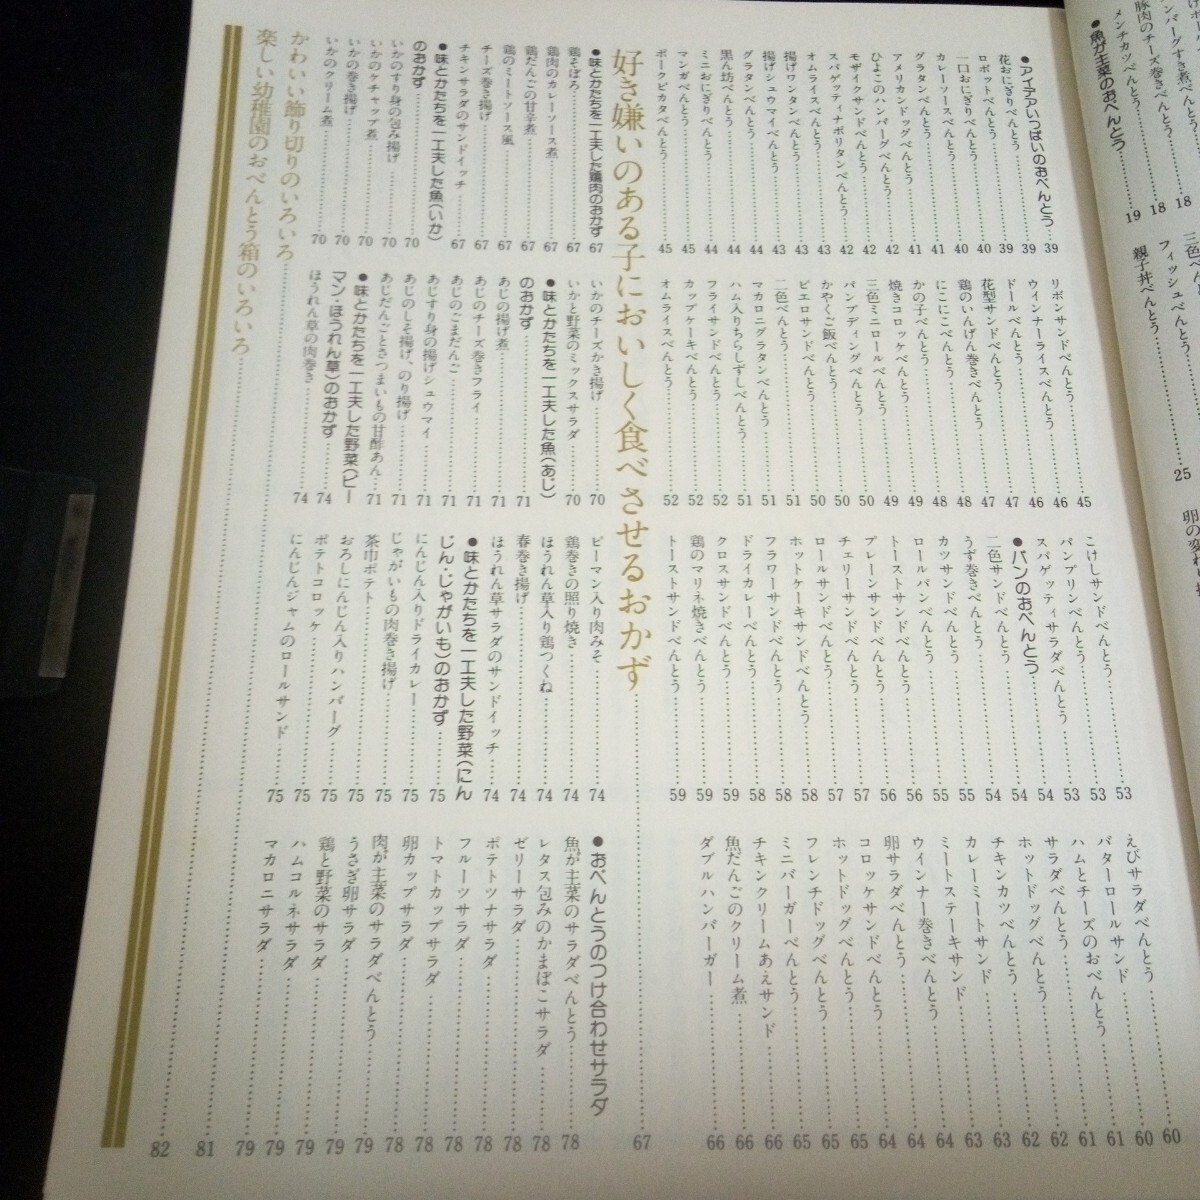 けホー
バーグすき煮べんとう……18
豚肉のチーズ巻きべんとう……18
メンチカツべんとう……19
●魚が主菜のおべんとう
三色べ
フィッシュべんとう……25
親子丼べんとう
卵の変わり
●アイデアいっぱいのおべんとう……39
花おにぎりべんとう……39
ロボットべんとう……40
一口おにぎりべんとう……40
カレーソースべんとう……41
グラタンべんとう……41
アメリカンドッグべんとう……42
ひよこのハンバーグべんとう……42
モザイクサンドべんとう……42
スパゲッティナポリタンべんとう……43
オムライスべんとう……43
揚げワンタンべんとう……43
揚げシュウマイべんとう……44
グラタンべんとう……44
黒ん坊べんとう……44
ミニおにぎりべんとう……44
マンガべんとう……45
ポークピカタべんとう……45
リボンサンドべんとう……45
ウインナーライスべんとう……46
ドールべんとう……46
花型サンドべんとう……47
鶏のいんげん巻きべんとう……47
にこにこべんとう……48
かの子べんとう……48
焼きコロッケべんとう……49
三色ミニロールべんとう……49
パンプディングべんとう……50
かやくご飯べんとう……50
ピエロサンドべんとう……50
二色べんとう……51
マカロニグラタンべんとう……51
ハム入りちらしずしべんとう……51
フライサンドべんとう……52
カップケーキべんとう……52
オムライスべんとう……52
こけしサンドべんとう……53
パンプリンべんとう……53
スパゲッティサラダべんとう……53
●パンのおべんとう……54
二色サンドべんとう……54
うず巻きべんとう……54
カツサンドべんとう……55
ロールパンべんとう……55
トーストサンドべんとう……56
プレーンサンドべんとう……56
チェリーサンドべんとう……57
ロールサンドべんとう……57
ホットケーキサンドべんとう……58
フラワーサンドべんとう……58
ドライカレーべんとう……58
クロスサンドべんとう……59
鶏のマリネ焼きべんとう……59
トーストサンドべんとう……59
えびサラダべんとう……60
バターロールサンド……60
ハムとチーズのおべんとう……61
サラダべんとう……61
ホットドッグべんとう……62
チキンカツべんとう……62
カレーミートサンド……63
ミートステーキサンド……63
ウインナー巻きべんとう……64
卵サラダべんとう……64
コロッケサンドべんとう……64
ホットドッグべんとう……65
フレンチドッグべんとう……65
ミニバーガーべんとう……65
チキンクリームあえサンド……66
魚だんごのクリーム煮……66
ダブルハンバーガー……66
好き嫌いのある子においしく食べさせるおかず……67
●味とかたちを一工夫した鶏肉のおかず……67
鶏そぼろ……67
鶏肉のカレーソース煮……67
鶏だんごの甘辛煮……67
鶏のミートソース風……67
チーズ巻き揚げ……67
チキンサラダのサンドイッチ……67
●味とかたちを一工夫した魚(いか)
のおかず……70
いかのすり身の包み揚げ……70
いかのケチャップ煮……70
いかの巻き揚げ……70
いかのクリーム煮……70
いかのチーズかき揚げ……70
いかと野菜のミックスサラダ……70
●味とかたちを一工夫した魚(あじ)
のおかず……71
あじの揚げ煮……71
あじのチーズ巻きフライ……71
あじのごまだんご……71
あじすり身の揚げシュウマイ……71
あじのしそ揚げ、のり揚げ……71
あじだんごとさつまいもの甘酢あん……71
●味とかたちを一工夫した野菜(ピー
マン・ほうれん草)のおかず……74
ほうれん草の肉巻き……74
ピーマン入り肉みそ……74
鶏巻きの照り焼き……74
ほうれん草入り鶏つくね……74
春巻き揚げ……74
ほうれん草サラダのサンドイッチ……74
●味とかたちを一工夫した野菜(にん
じん・じゃがいも)のおかず……75
にんじん入りドライカレー……75
じゃがいもの肉巻き揚げ……75
茶巾ポテト……75
おろしにんじん入りハンバーグ……75
ポテトコロッケ……75
にんじんジャムのロールサンド……75
●おべんとうのつけ合わせサラダ
魚が主菜のサラダべんとう……78
レタス包みのかまぼこサラダ……78
ゼリーサラダ……78
ポテトツナサラダ……78
フルーツサラダ……78
トマトカップサラダ……78
卵カップサラダ……78
肉が主菜のサラダべんとう……79
うさぎ卵サラダ……79
鶏と野菜のサラダ……79
ハムコルネサラダ……79
マカロニサラダ……79
かわいい飾り切りのいろいろ……81
楽しい幼稚園のおべんとう箱のいろいろ……82